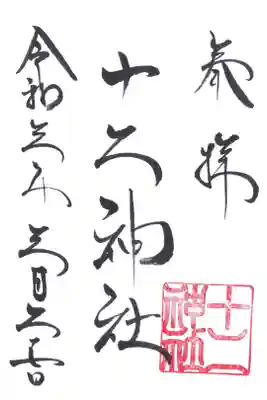 奉拝
十二神社
令和三年三月二十日
十二神社